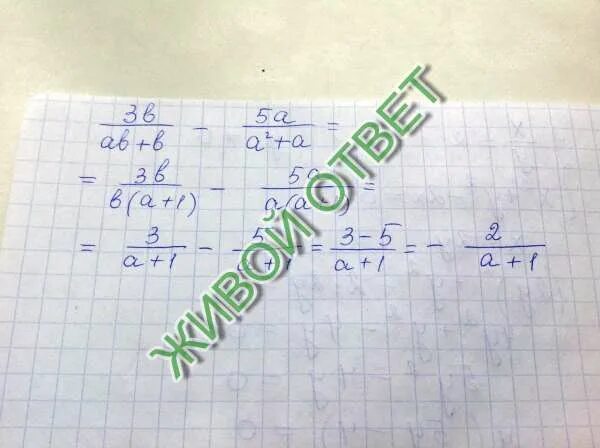 3в/(ав+в) − 5а/(а²+а) =
= 3в/(в(а+1)) − 5а/(а(а+1)) =
= 3/(а+1) − 5/(а+1) = (3−5)/(а+1) = − 2/(а+1)
ЖИВОЙ ОТВЕТ